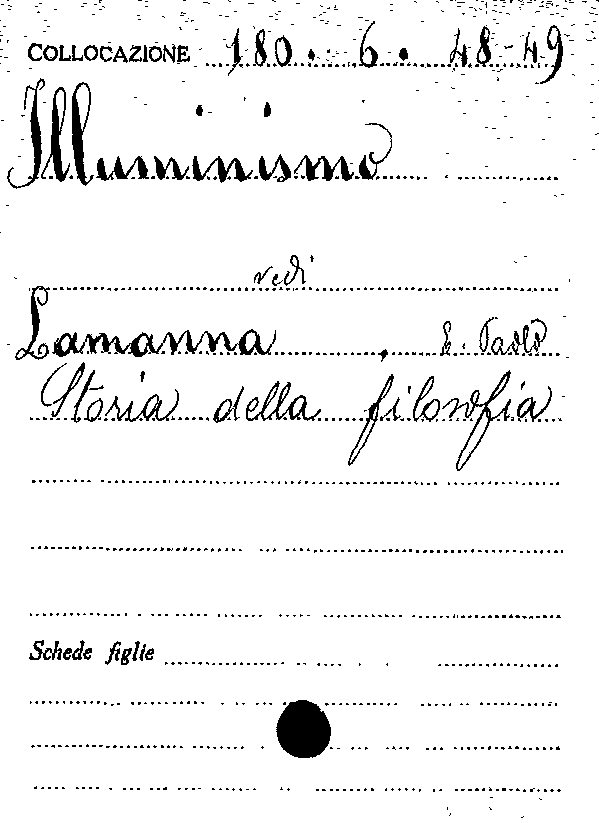 COLLOCAZIONE 180. 6. 48-49
Illuminismo
vedi
Lamanna, E. Paolo
Storia della filosofia
Schede figlie